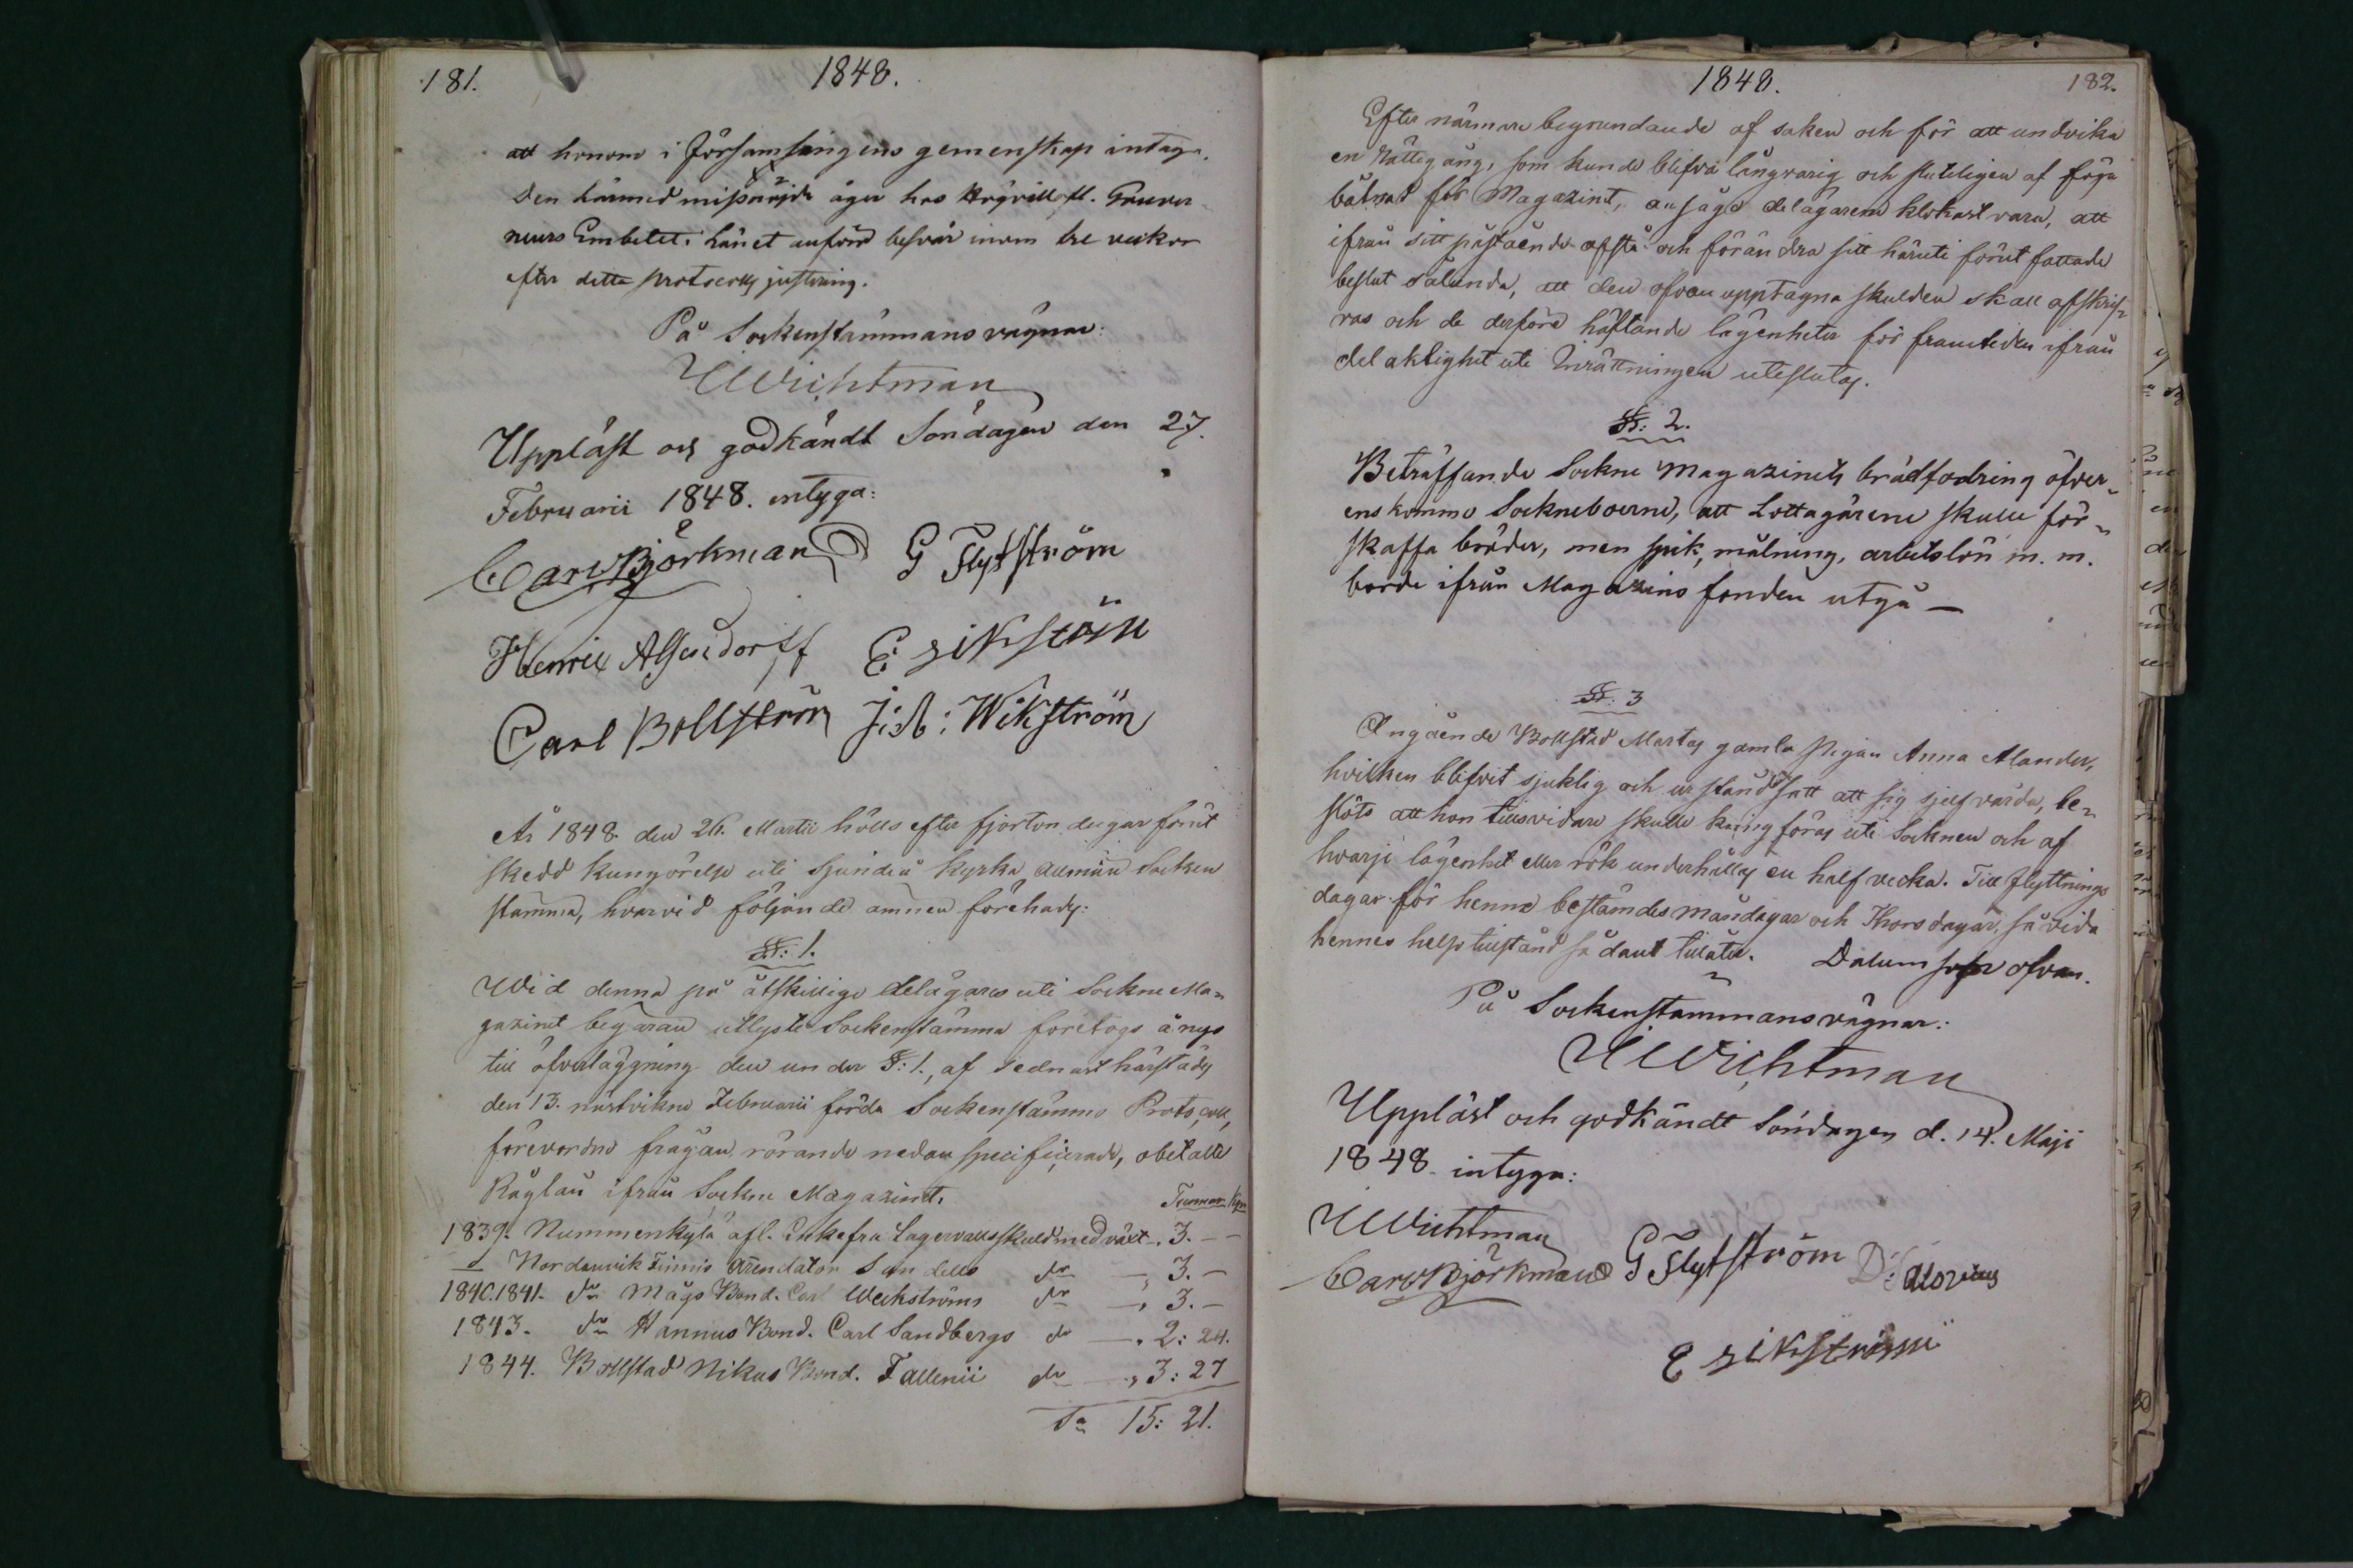 181. 1848.
att honom i Församlingens gemenskap intaga.
Den härmed missnöjde äger hos Högvällofl. Guver-
neurs Embetet i Länet anföra besvär inom tre veckor
efter detta protocolls justering.
På Sockenstämmans vägnar:
Wichtman
Uppläst och godkändt Söndagen den 27.
Februarii 1848. intyga:
Carl Björkman G Flytström
Henric E Sikström
Carl Bollström J: A: Wikström
År 1848 den 26. Martii hölls efter fjorton dagar förut
skedd kungörelse uti Sjundeå kyrka allmän Socken
stämma, hvarvid följande ämnen förehades:
§: 1.
Wid denna på åtskillige delägares uti Sockne Ma-
gazinet begäran utlyste Sockenstämma företogs ånyo
till öfverläggning den under §: 1., af sednast härstädes
den 13. nästvikne Februarii förda Sockenstämmo Protocoll,
förevordne frågan rörande nedan specificerade, obetalte
Råglån ifrån Sockne Magazinet.
Tunnor Kpr
1839. Nummenkylä afl. Enkefru Lagervalls skuld med växt „ 3. –
Nordanvik Finnis Arendator Sundells do „ 3. –
1840. 1841. do Mågs Bond. Carl Weckströms do „ 3. –
1843. do Hannus Bond. Carl Sandbergs do „ 2: 24.
1844. Bollstad Nikus Bond. Fallenii do „ 3: 27
Sa 15: 21.
1848. 182.
Efter närmare begrundande af saken och för att undvika
en Rättegång, som kunde blifva långvarig och sluteligen af föga
båtnad för Magazinet, ansågo delägarene klokast vara, att
ifrån sitt påstående afstå och förändra sitt häruti förut fattade
beslut sålunda, att den ofvan upptagna skulden skall afskrif-
vas och de derföre häftande lägenheter för framtiden ifrån
delaktighet uti Inrättningen uteslutas.
§: 2.
Beträffande Sockne Magazinets brädfodring öfver-
enskommo Sockneboerne, att Lottagärene skulle för-
skaffa bräder, men spik, målning, arbetslön m. m.
borde ifrån Magazins fonden utgå —
§: 3
Angående Bollstad Martas gamla pigan Anna Alander,
hvilken blifvit sjuklig och urståndsatt att sig sjelf vårda, be-
slöts att hon tillsvidare skulle kringföras uti Socknen och af
hvarje lägenhet eller rök underhållas en half vecka. Till flyttnings
dagar för henne bestämdes måndagar och Thorsdagar, så vida
hennes helsotillstånd sådant tillåter. Datum som ofvan.
På Sockenstämmans vägnar:
Wichtman
Uppläst och godkändt Söndagen d. 14. Maji
1848 intyga:
Wichtman
Carl Björkman G Flytström
E Sikström